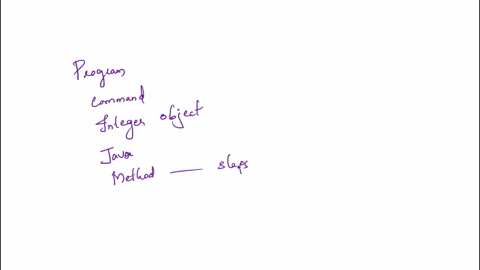 Program
command
Integer object
Java
Method — steps